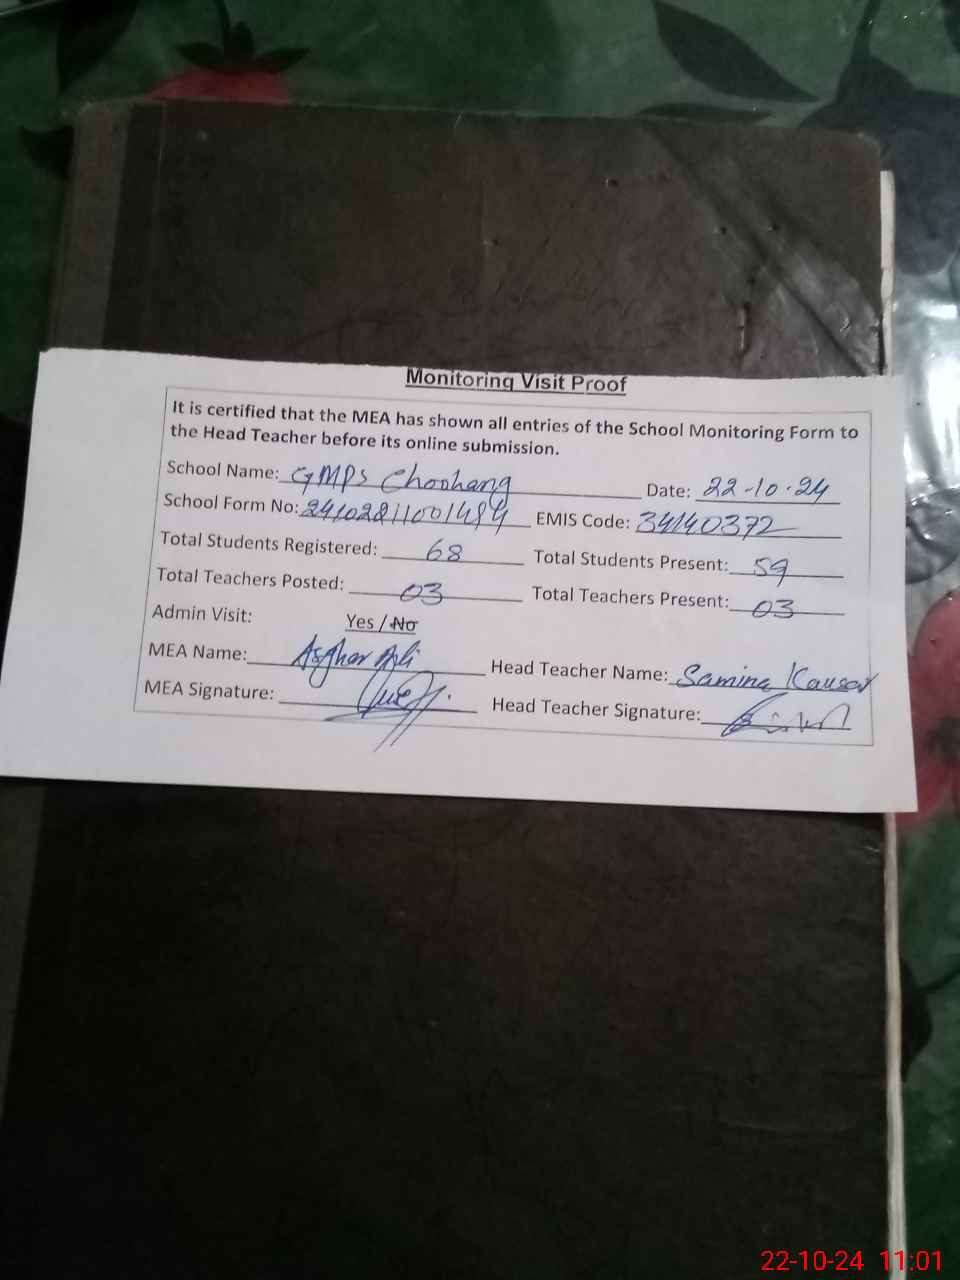 Monitoring Visit Proof
It is certified that the MEA has shown all entries of the School Monitoring Form to
the Head Teacher before its online submission.
School Name: GMPS Choohang Date: 22-10-24
School Form No: EMIS Code: 34140372
Total Students Registered: 68 Total Students Present: 59
Total Teachers Posted: 03 Total Teachers Present: 03
Admin Visit: Yes / No
MEA Name: Asghar Ali Head Teacher Name: Samina Kausar
MEA Signature: Head Teacher Signature:
22-10-24 11:01